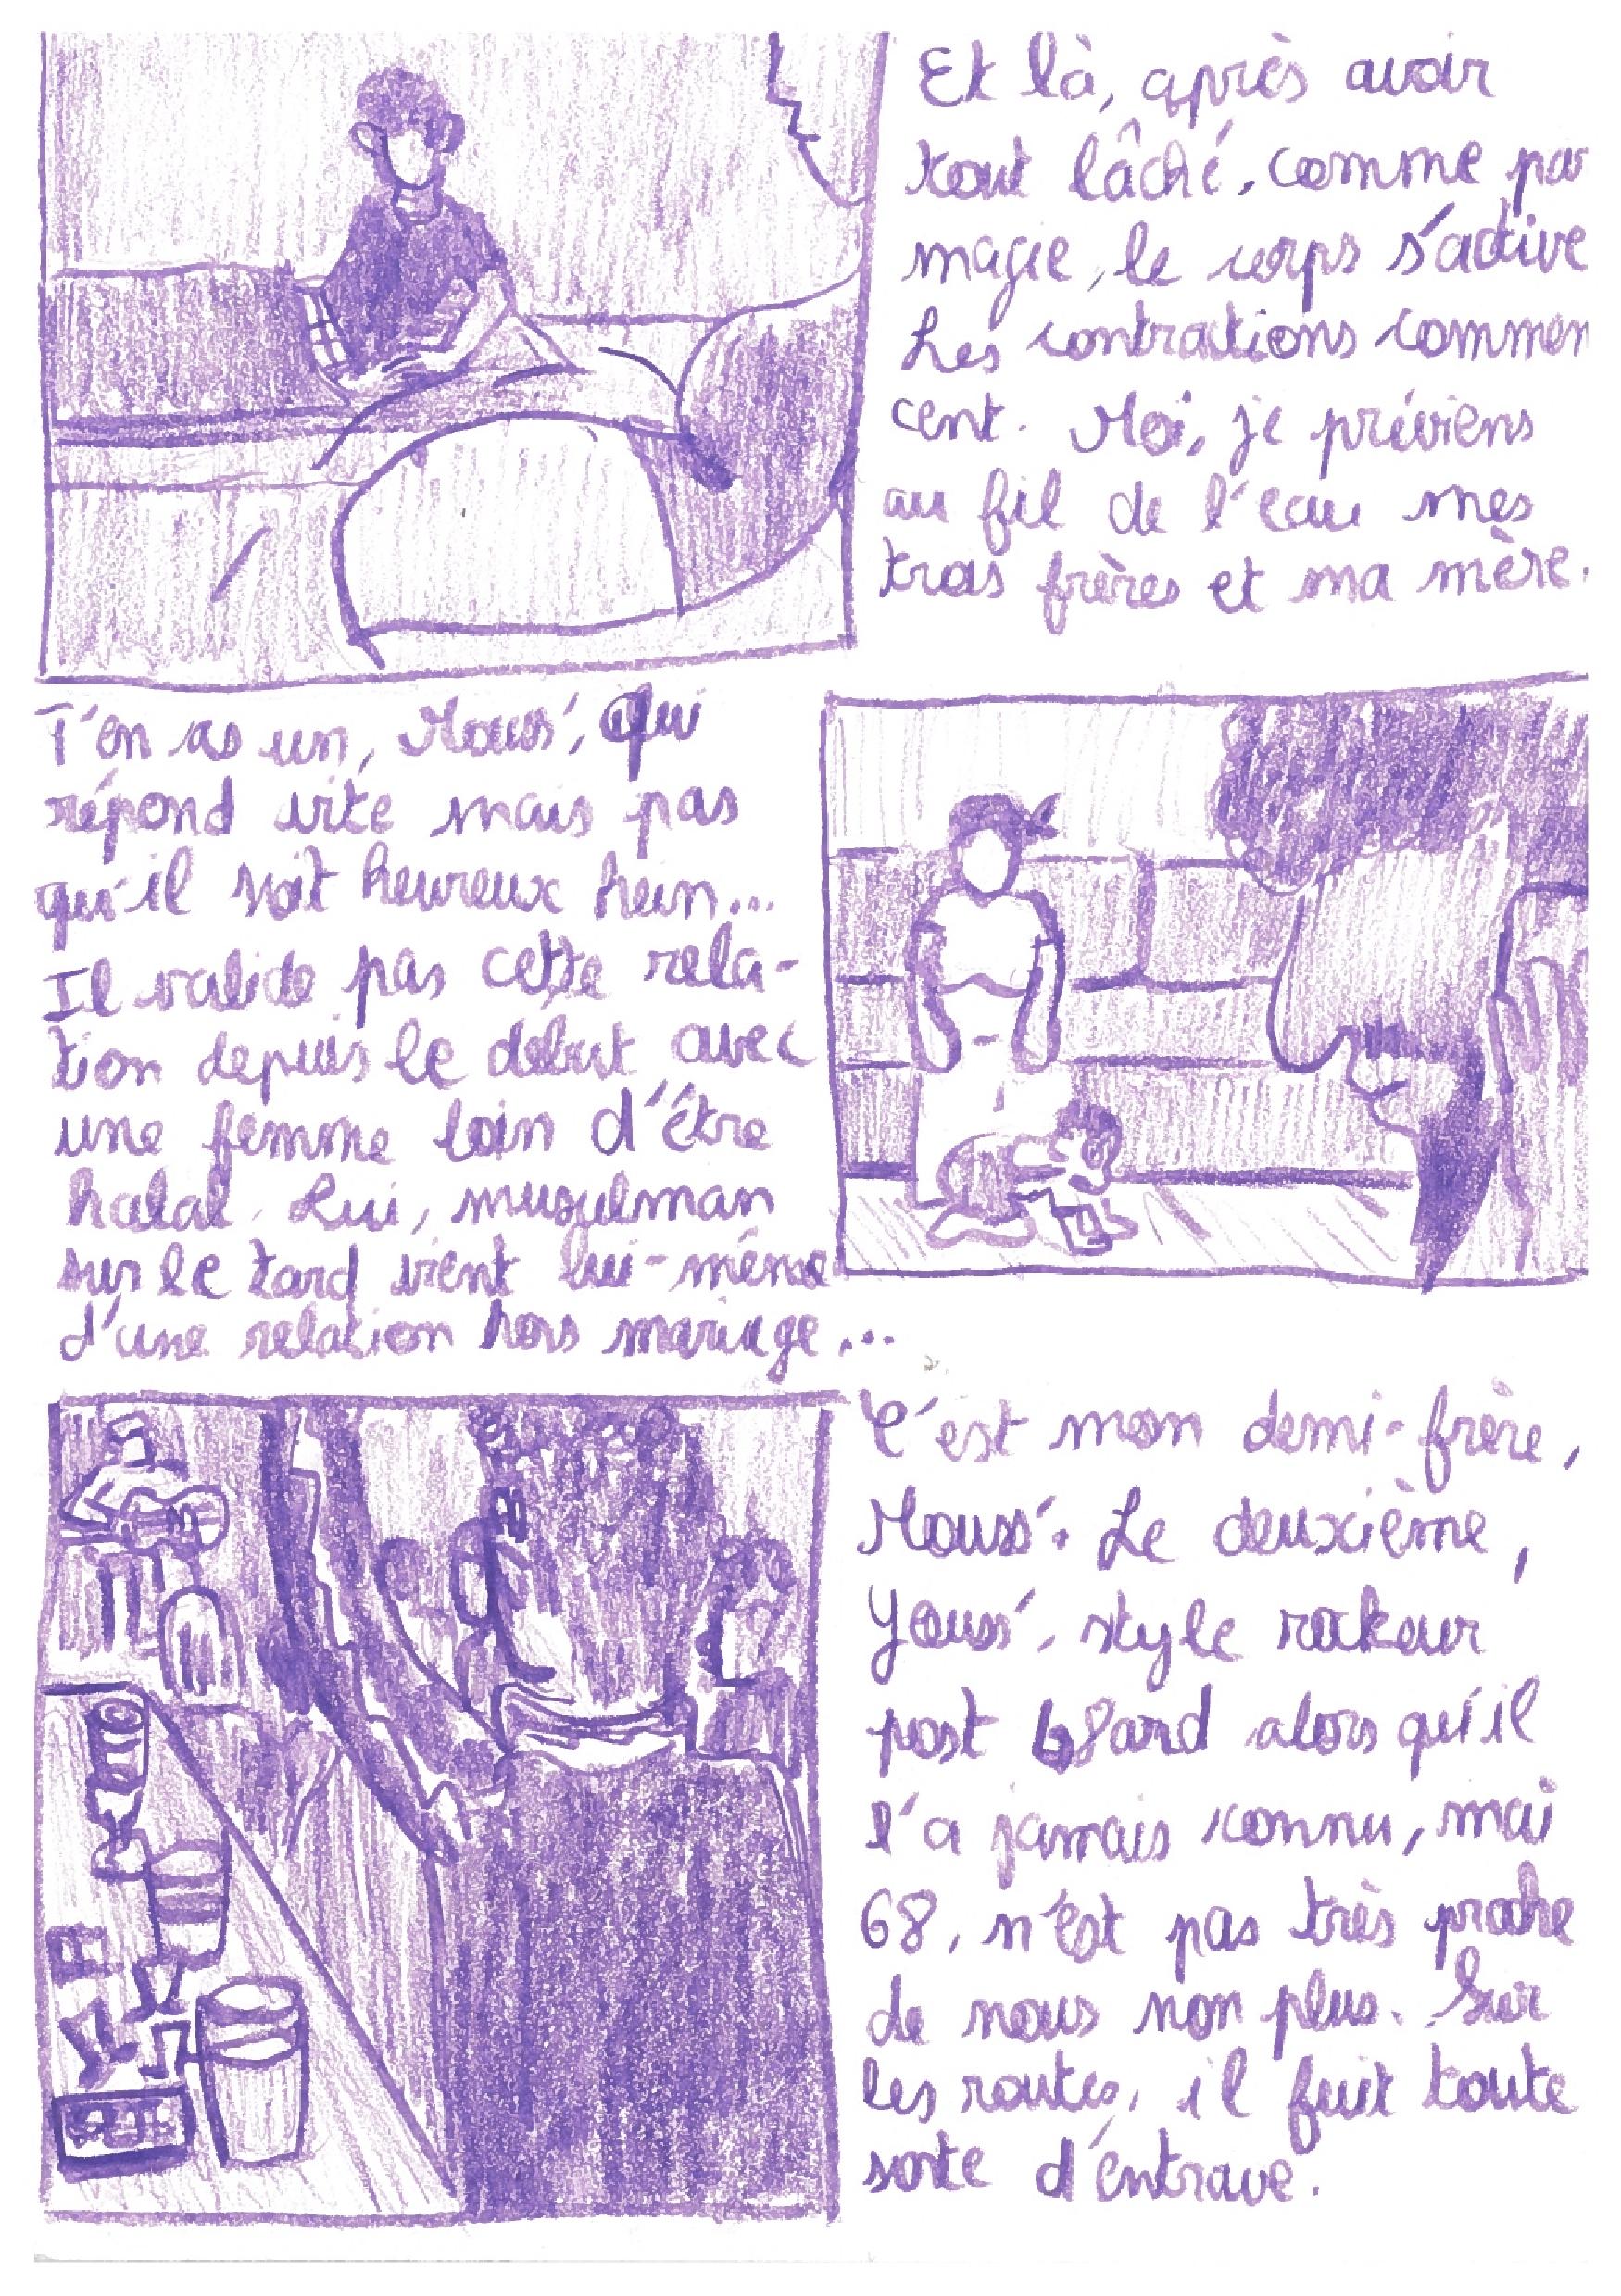 Et là, après avoir
tout lâché, comme par
magie, le corps s'active
Les contractions commen
cent. Moi, je préviens
au fil de l'eau mes
trois frères et ma mère.
T'en as un, Mouss', qui
répond vite mais pas
qu'il soit heureux hein...
Il valide pas cette rela-
tion depuis le début avec
une femme loin d'être
halal. Lui, musulman
sur le tard vient lui-même
d'une relation hors mariage...
C'est mon demi-frère,
Mouss'. Le deuxième,
Youss', style rockeur
post 68ard alors qu'il
l'a jamais connu, mai
68, n'est pas très proche
de nous non plus. Sur
les routes, il fuit toute
sorte d'entrave.